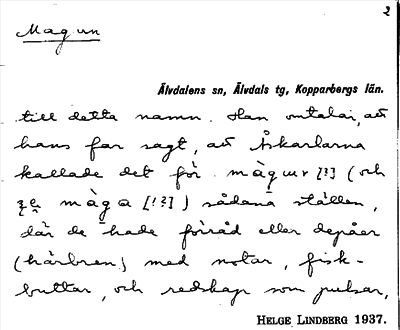 2
Magun
Älvdalens sn, Älvdals tg, Kopparbergs län.
till detta namn. Han omtalar, att
hans far sagt, att Åskarlarna
kallade det för màgur [?] (och
màga [!?]) sådana ställen,
där de hade förråd eller depåer
(härbren) med notar, fisk-
buttar, och redskap som pulsar,
HELGE LINDBERG 1937.